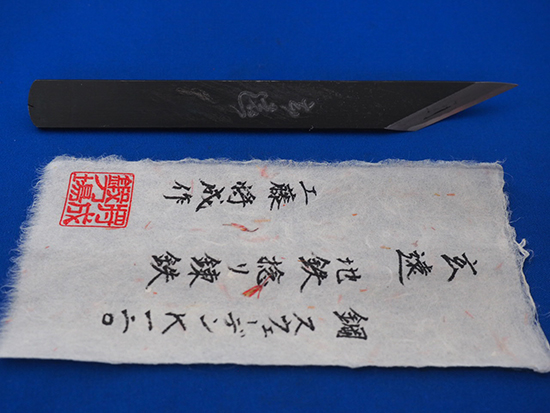 玄遠
玄遠
地鉄 捻り錬鉄
鋼 スウェーデンK一二〇
工藤将成作